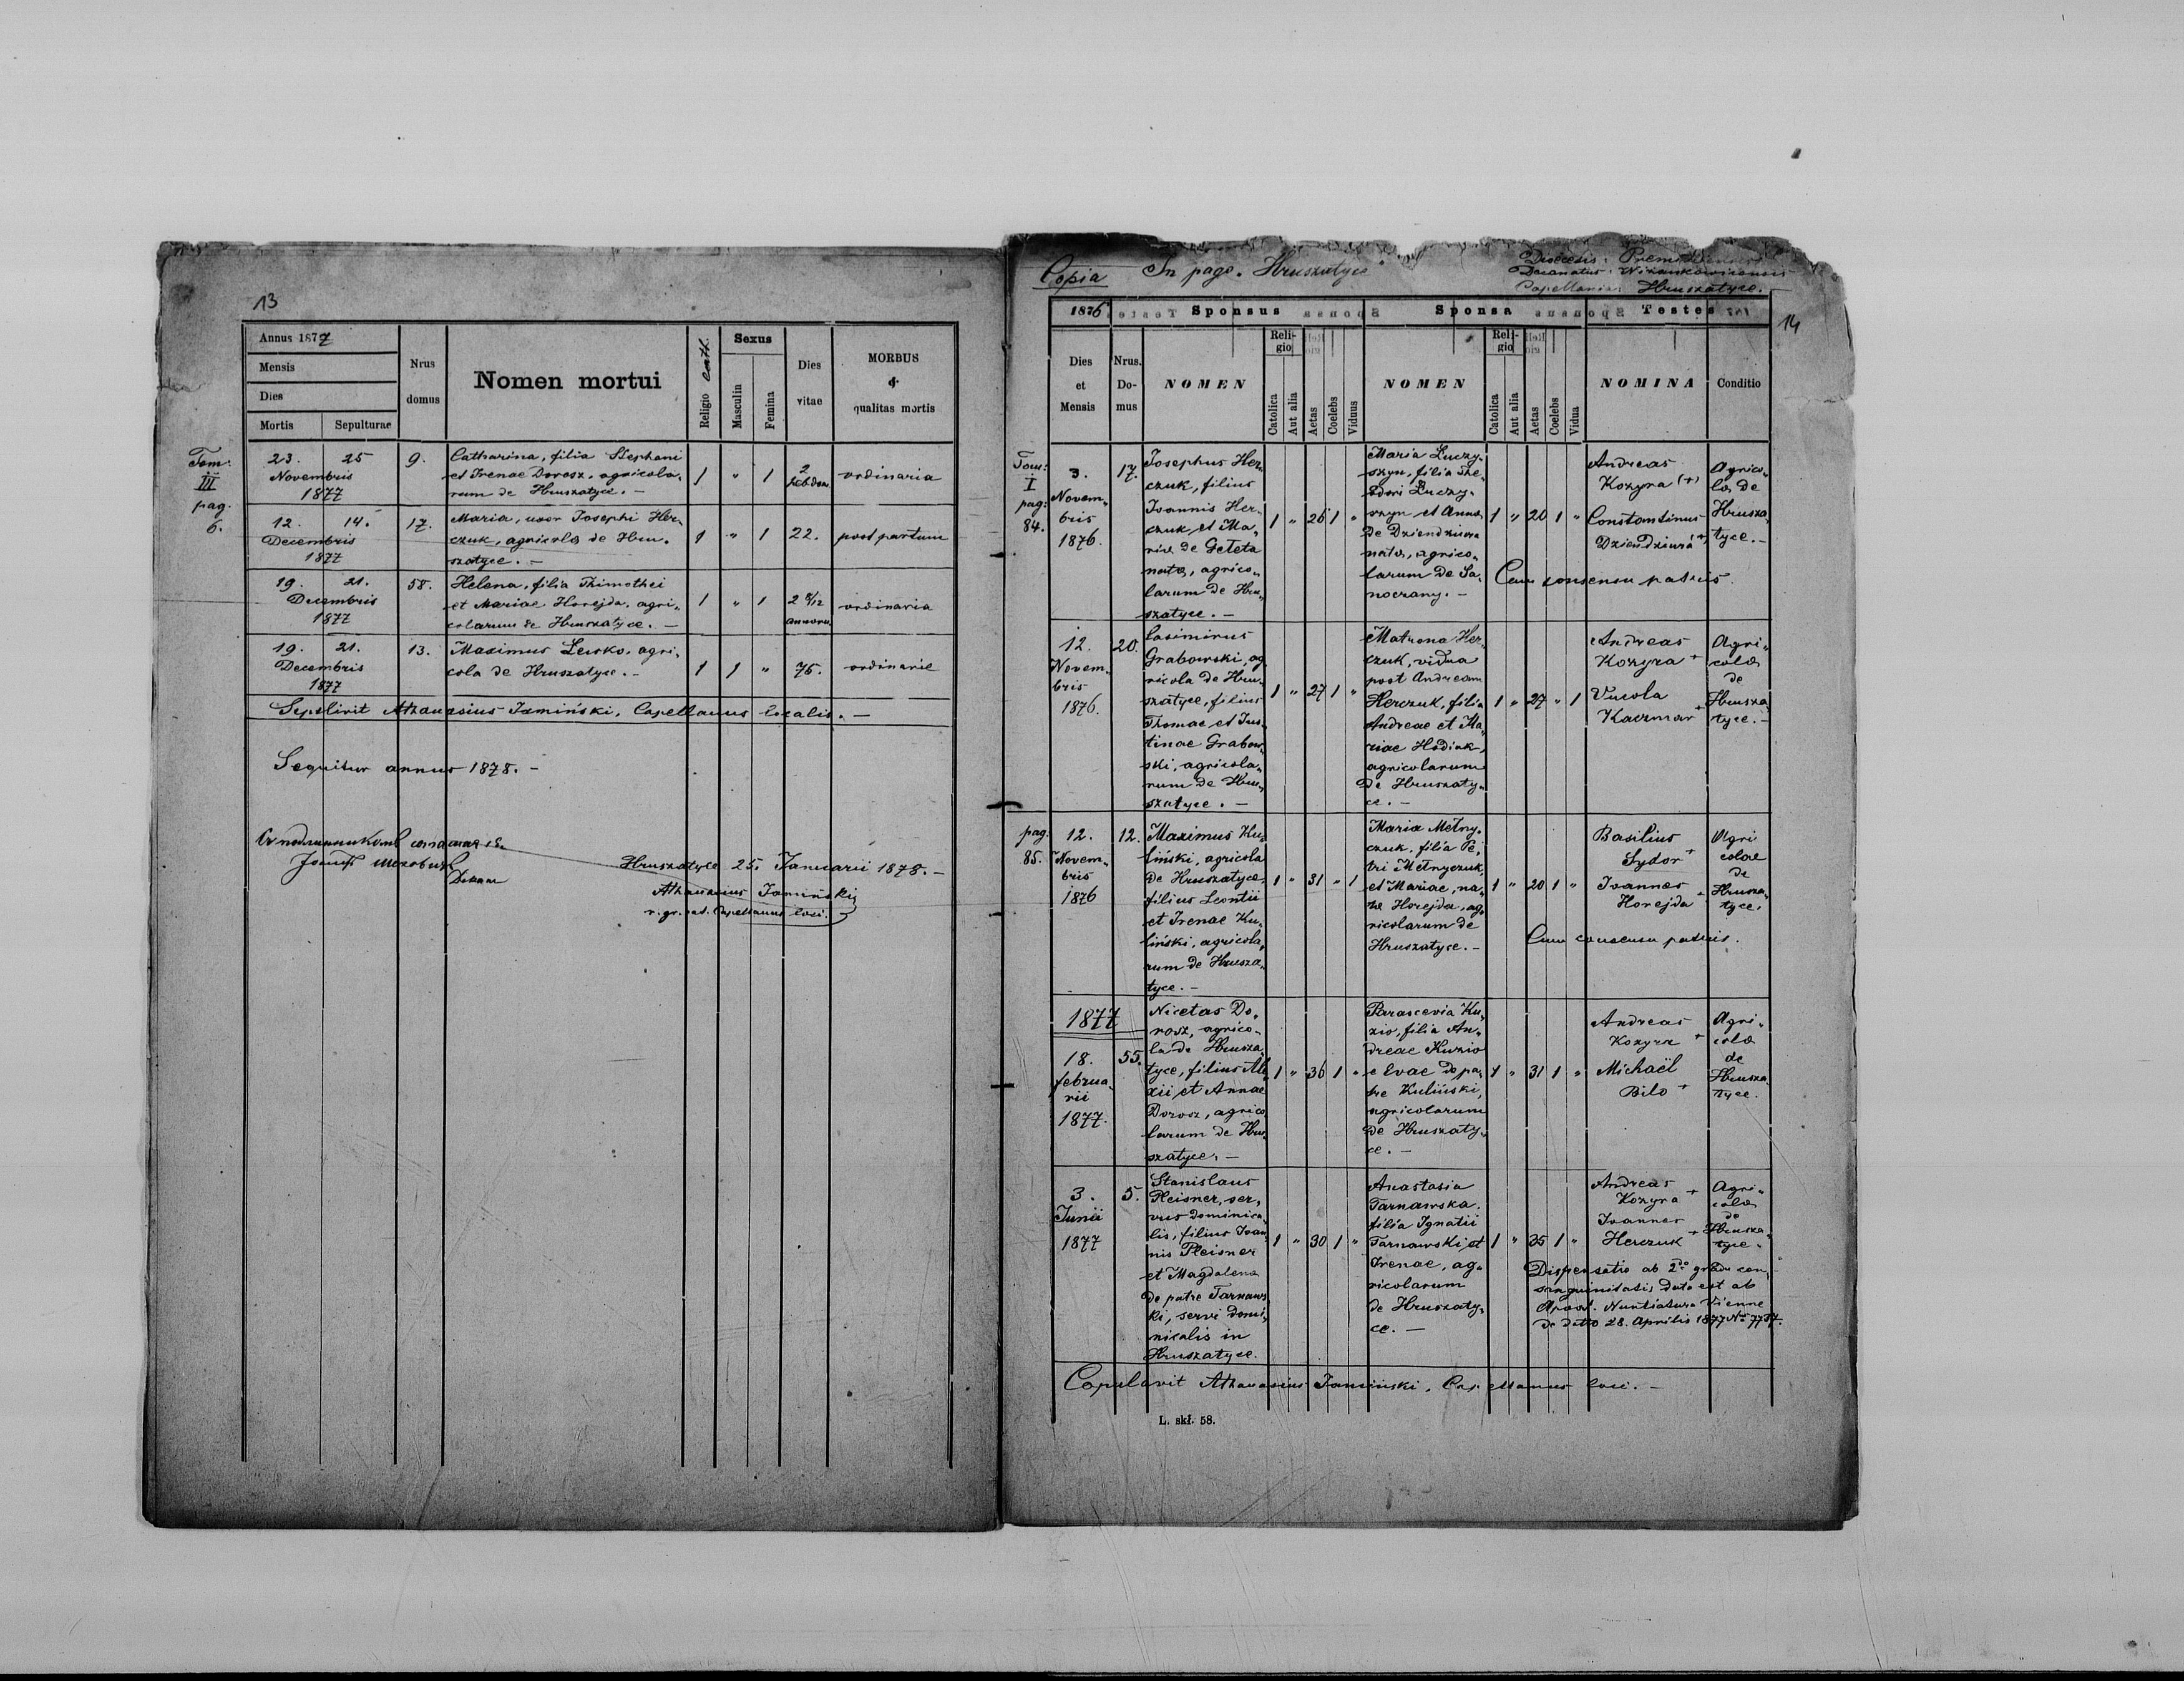 13
Annus 1877
Mensis
Dies
Mortis
Sepulturae
Nrus
domus
Nomen mortui
Religio cath.
Sexus
Masculin
Femina
Dies
vitae
MORBUS
&
qualitas mortis
Tom:
III
pag.
6.
23. 25
Novembris
1877
9.
Catharina, filia Stephani
et Irenae Dorosz, agricola-
rum de Hruszatyce. –
1 " 1
2
hebdom.
ordinaria
12. 14.
Decembris
1877
17.
Maria, uxor Josephi Her-
czuk, agricola de Hru-
szatyce. –
1 " 1
22.
post partum
19. 21.
Decembris
1877
58.
Helena, filia Thimothei
et Mariae Horejda, agri-
colarum de Hruszatyce. –
1 " 1
2 8/12
annorum
ordinaria
19. 21.
Decembris
1877
13.
Maximus Lewko, agri-
cola de Hruszatyce. –
1 1 "
75.
ordinariae
Sepelivit Athanasius Jamiński, Capellanus localis. –
Sequitur annus 1878. –
Hruszatyce 25. Januarii 1878. –
Athanasius Jamiński
r. gr. cat. Capellanus loci. –
Copia
In pago. Hruszatyce
Dioecesis:
Decanatus:
Capellania: Hruszatyce.
14
1876
Sponsus
Sponsa
Testes
Dies
et
Mensis
Nrus.
Do-
mus
NOMEN
Reli-
gio
Catolica
Aut alia
Aetas
Coelebs
Viduus
NOMEN
Reli-
gio
Catolica
Aut alia
Aetas
Coelebs
Vidua
NOMINA
Conditio
Tom:
I
pag:
84.
3.
Novem-
bris
1876.
17.
Josephus Her-
czuk, filius
Joannis Her-
czuk, et Ma-
riae de Geteta
nata, agrico-
larum de Hru-
szatyce. –
1 " 26 1 "
Maria Luczy-
szyn, filia The-
odori Luczy-
szyn et Anna
de Dziendziura
nata, agrico-
larum de Sa-
noczany. –
1 " 20 1 "
Andreas
Kozyra (+)
Constantinus
Dziendziura +
Agrico-
la de
Hrusza-
tyce. –
Cum consensu patris.
12.
Novem-
bris
1876.
20.
Casimirus
Grabowski, ag-
ricola de Hru-
szatyce, filius
Thomae et Jus-
tinae Grabow-
ski, agricola-
rum de Hru-
szatyce. –
1 " 27 1 "
Matrona Her-
czuk, vidua
post Andream
Herczuk, filia
Andreae et Ma-
riae Hodiak,
agricolarum
de Hruszaty-
ce. –
1 " 27 " 1
Andreas
Kozyra +
Vucola
Kaczmar +
Agri-
cola
de
Hrusza-
tyce. –
pag.
85.
12.
Novem-
bris
1876
12.
Maximus Ku-
liński, agricola
de Hruszatyce,
filius Leontii
et Irenae Ku-
liński, agricola-
rum de Hrusza-
tyce. –
1 " 31 " 1
Maria Metny-
czuk, filia Pe-
tri Metnyczuk
et Mariae, na-
ta Horejda, ag-
ricolarum de
Hruszatyce. –
1 " 20 1 "
Basilius
Sydor +
Joannes
Horejda +
Agri
colae
de
Hrusza-
tyce.
Cum consensu patris.
1877
18.
februa-
rii
1877.
55.
Nicetas Do-
rosz, agrico-
la de Hrusza-
tyce, filius Ale-
xii et Annae
Dorosz, agrico-
larum de Hru-
szatyce. –
1 " 36 1 "
Parascevia Ku-
zio, filia An-
dreae Kuzio
e Evae de pa-
tre Kuliński,
agricolarum
de Hruszaty-
ce. –
1 " 31 1 "
Andreas
Kozyra +
Michaël
Bilo +
Agri-
cola
de
Hrusza-
tyce.
3.
Junii
1877
5.
Stanislaus
Pleisner, ser-
vus dominica-
lis, filius Joan-
nis Pleisner
et Magdalena
de patre Tarnaws-
ki, servi domi-
nicalis in
Hruszatyce.
1 " 30 1 "
Anastasia
Tarnawska,
filia Ignatii
Tarnawski et
Irenae, ag-
ricolarum
de Hruszaty-
ce. –
1 " 25 1 "
Andreas
Kozyra +
Joannes
Herczuk +
Agri-
cola
de
Hrusza-
tyce.
Dispensatio ab 2do gradu con-
sanguinitatis data est ab
Apost. Nuntiatura Vienne
de dato 28. Aprilis 1877
Copulavit Athanasius Jamiński, Capellanus loci. –
L. skł. 58.